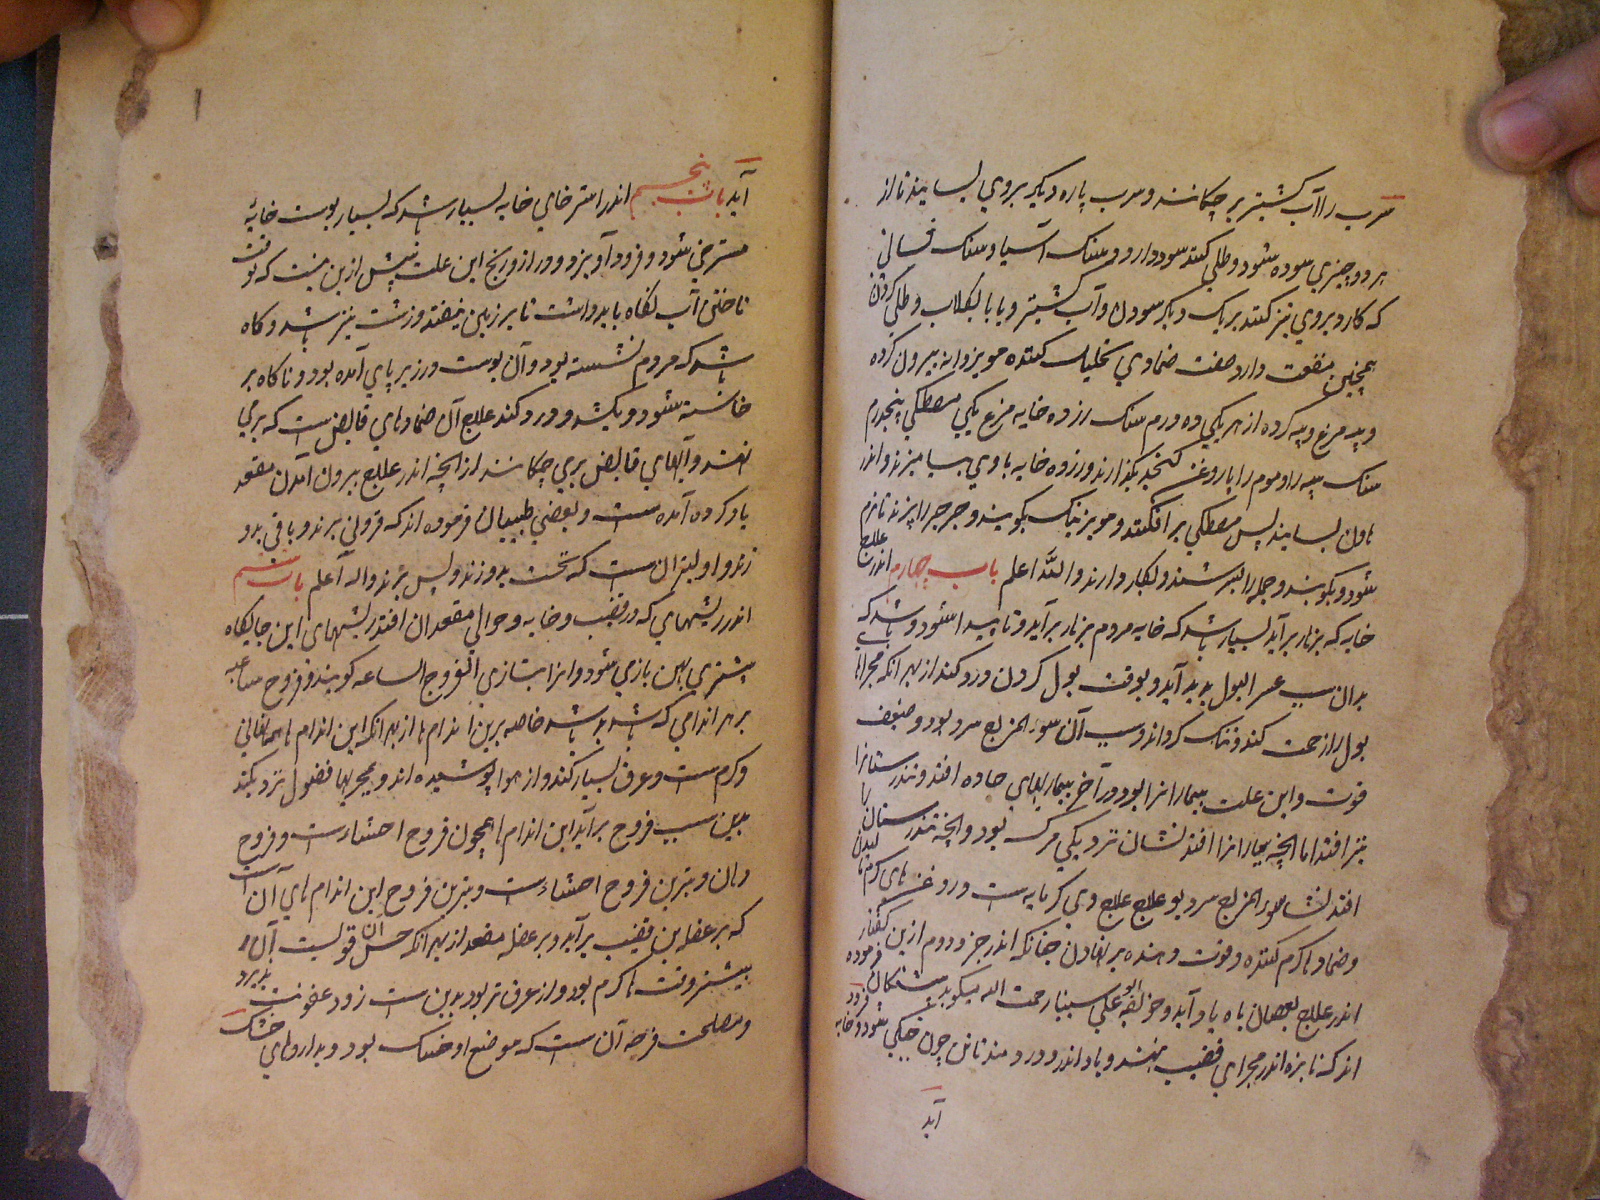 سرب را آب کشنیز بر چکانند و سرب پاره دیگر بروی بسایند تا از
هر دو چیزی سوده شود و طلی کنند سود دارد و سنک آسیا و سنک فسانی
که کارد بروی تیز کنند بر یک دیگر سودن و آب کشنیز و یا با لبلاب و طلی کردن
همچنین منفعت دارد صفت ضمادی تحلیل کننده مویز دانه بیرون کرده
و پیه مرغ و پیه کرده از هر یکی ده درم سنک زرده خایه مرغ یکی مصطکی پنجدرم
سنک پیه را و موم را با روغن کنجد بکدازند و زرده خایه با وی بیامیزند و اندر
هاون بسایند پس مصطکی بر افکنند و مویز نیک بکویند و جرجیر را بپزند تا نرم
شود و بکوبند و جمله را بسرشند و بکار دارند والله اعلم باب چهارم اندر علاج
خایه که بزنار برآید بسیار باشد که خایه مردم بزنار برآید و ناپیدا شود و باشد که
بدان سبب عسر البول پدید آید و بوقت بول کردن درد کند از بهر آنکه مجراء
بول را زحمت کند و تنک کرداند و سبب آن سوء المزاج سرد بود و ضعف
قوت و این علت بیمارانرا بود در آخر بیماریهای حاده افتد و تندرستانرا
نیز افتد اما انچه بیمارانرا افتد نشان نزدیکی مرک بود و انچه تندرستان را
افتد نشان سوء المزاج سرد بود علاج علاج وی کرمابه است و روغن های کرم
و ضمادها کرم کننده و قوت دهنده بر نهادن چنانکه اندر جزو دوم ازین کفتار
اندر علاج نقصان باه یاد آید و خواجه ابو علی سینا رحمت الله میکوید فرموده
اند که نایزه اندر مجرای قضیب نهند و باد اندر دمند تا تن چون خیکی شود و خایه فرود
آید
آید باب پنجم اندر استرخای خایه بسیار باشد که بسیار پوست خایه
مسترخی شود و فرود آویزد و دراز و رنج این علت بیش ازین نیست که بوقت
تاختن آب نکاه باید داشت تا بر زمین نیفتد و زشت نیز باشد و کاه
باشد که مردم نشسته بود و آن پوست در زیر پای آمده بود و ناکاه بر
خاسته شود و بکشد و درد کند علاج آن ضمادهای قابض است که بروی
نهند و آبهای قابض بروی چکانند از انچه اندر علاج بیرون آمدن مقعد
یاد کرده آمده است و بعضی طبیبان فرموده اند که فزونی ببرند و باقی بدو
زند و اولیتر آن است که نخست بدوزند و پس ببرند والله اعلم باب ششم
اندر ریشهای که در قضیب و خایه و حوالی مقعد ان افتد ریشهای این جایکاه
بیشتری بدین بازی شود و انرا بتازی القروح الساعه کویند و قروح
بر هر اندامی که باشد بد باشد خاصه برین اندام ها از بهر آنکه این اندام ها
و کرم است و عرق بسیار کند و از هوا پوشیده اند و مجریها فضول نزدیکند
بدین سبب قروح بر آید این اندام ها همچون قروح احشا است و قروح
دهان و بترین قروح احشاء است و بترین قروح این اندام های آن است
که بر عضله بن قضیب برآید و بر عضله مقعد از بهر آنکه حس آن قویست آن
بیشتر وقت ها کرم بود و از عرق تر بود بدین است زود عفونت پذیرد
و مصلحت قرحه آن است که موضع او خشک بود و بداروهای خشک